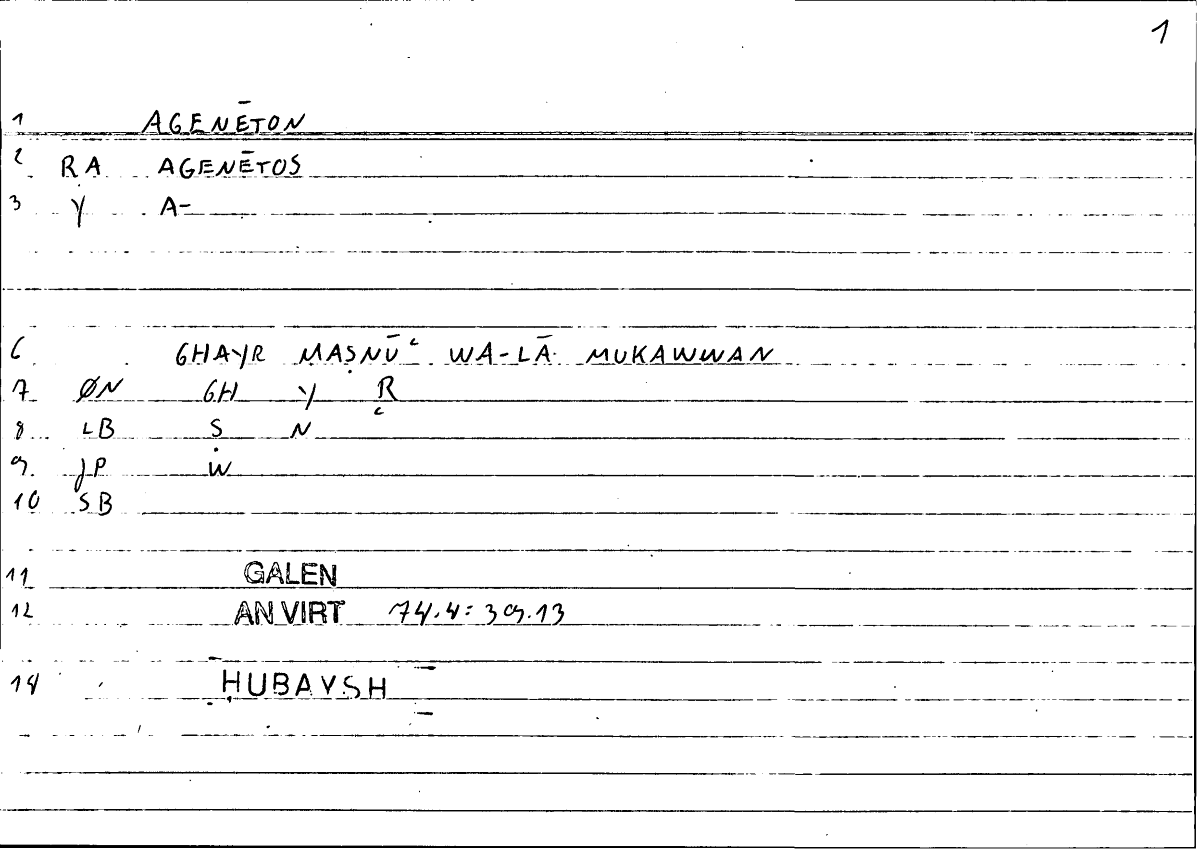 1
1 AGENĒTON
2 RA AGENĒTOS
3 Y A-
6 GHAYR MAṢNŪʿ WA-LĀ MUKAWWAN
7 ØN GH Y R
8 LB Ṣ N ʿ
9. JP W
10 SB
11 GALEN
12 AN VIRT 74.4: 39.13
14 ḤUBAYSH